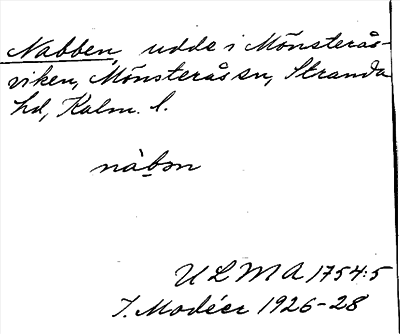 Nabben, udde i Mönsterås-
viken, Mönsterås sn, Stranda
hd, Kalm. l.
nàbən
ULMA 1754:5
I. Modéer 1926-28